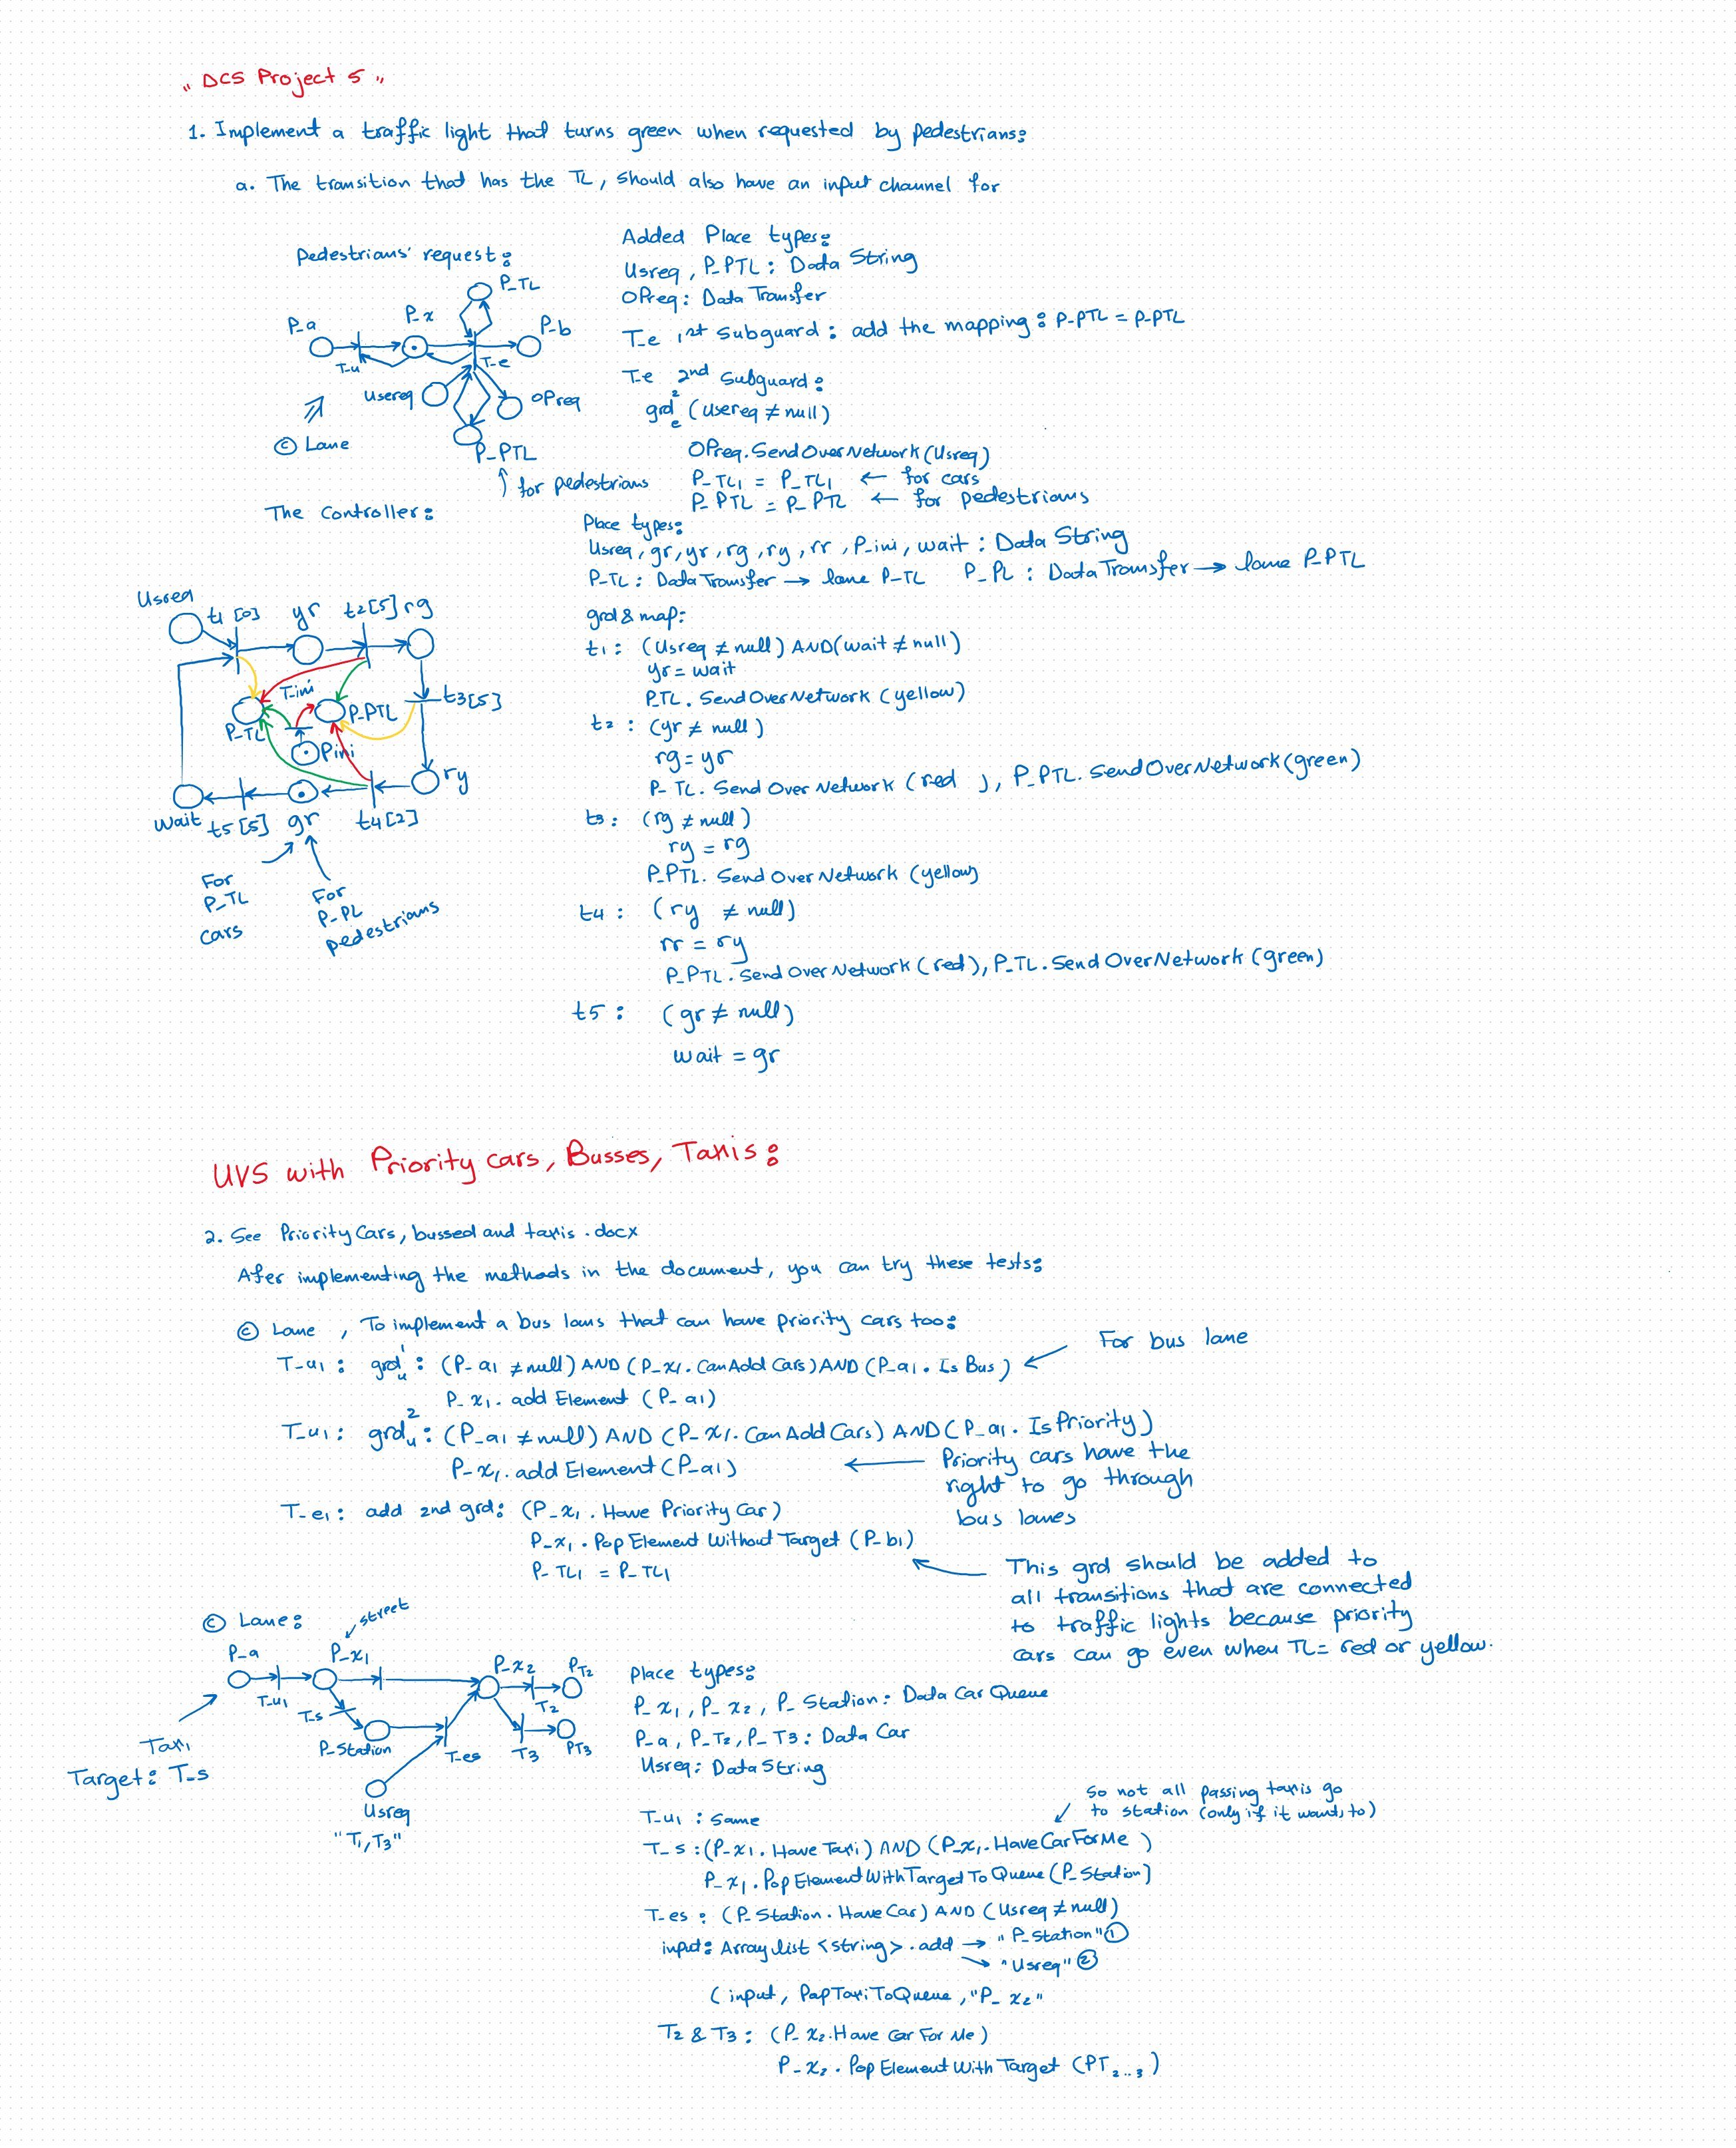 "DCS Project 5"
1. Implement a traffic light that turns green when requested by pedestrians:
a. The transition that has the TL, should also have an input channel for
Pedestrians' request:
P_TL
P_a
P_x
P_b
T_u
T_e
Usereq
OPreq
© Lane
P_PTL
for pedestrians
Added Place types:
Usreq, P_PTL: Data String
OPreq: Data Transfer
T_e 1st Subguard: add the mapping: P_PTL = P_PTL
T_e 2nd Subguard:
grd 2 e (Usereq ≠ null)
OPreq.SendOverNetwork(Usreq)
P_TL1 = P_TL1 ← for cars
P_PTL = P_PTL ← for pedestrians
The Controller:
Place types:
Usreq, gr, yr, rg, ry, rr, P_ini, wait: Data String
P_TL: Data Transfer → lane P_TL P_PL: Data Transfer → lane P_PTL
Usreq
t1 [0]
yr
t2[5]
rg
T_ini
P_TL
P_PTL
t3[5]
Pini
ry
wait
t5[5]
gr
t4[2]
For
P_TL
cars
For
P_PL
pedestrians
grd & map:
t1: (Usreq ≠ null) AND (wait ≠ null)
yr = wait
P_TL. SendOverNetwork (yellow)
t2: (yr ≠ null)
rg = yr
P_TL. Send Over Network (red), P_PTL. SendOverNetwork(green)
t3: (rg ≠ null)
ry = rg
P_PTL. Send Over Network (yellow)
t4: (ry ≠ null)
rr = ry
P_PTL. Send Over Network (red), P_TL. Send OverNetwork (green)
t5: (gr ≠ null)
wait = gr
UVS with Priority cars, Busses, Taxis:
2. See Priority Cars, bussed and taxis .docx
Afer implementing the methods in the document, you can try these tests:
© Lane, To implement a bus lans that can have priority cars too:
T_u1: grd 1 u: (P_a1 ≠ null) AND (P_x1. CanAdd Cars) AND (P_a1. Is Bus)
For bus lane
P_x1. add Element (P_a1)
T_u1: grd 2 u: (P_a1 ≠ null) AND (P_x1. Can Add Cars) AND (P_a1. IsPriority)
P_x1. add Element (P_a1)
Priority cars have the
right to go through
bus lanes
T_e1: add 2nd grd: (P_x1. Have Priority Car)
P_x1. Pop Element Without Target (P_b1)
P_TL1 = P_TL1
This grd should be added to
all transitions that are connected
to traffic lights because priority
cars can go even when TL = red or yellow.
© Lane:
street
P_a
P_x1
P_x2
PT2
T_u1
T_s
T2
P_Station
T_es
T3
PT3
Taxi
Target: T_s
Usreq
"T1, T3"
Place types:
P_x1, P_x2, P_Station: Data Car Queue
P_a, P_T2, P_T3: Data Car
Usreq: Data String
So not all passing taxis go
to station (only if it wants to)
T_u1: Same
T_s: (P_x1. Have Taxi) AND (P_x1. HaveCarForMe)
P_x1. Pop Element With Target To Queue (P_Station)
T_es: (P_Station. Have Car) AND (Usreq ≠ null)
input: Array list <string>. add → "P_Station" ①
→ "Usreq" ②
(input, PopTaxiToQueue, "P_x2"
T2 & T3: (P_x2. Have Car For Me)
P_x2. Pop Element With Target (PT2..3)